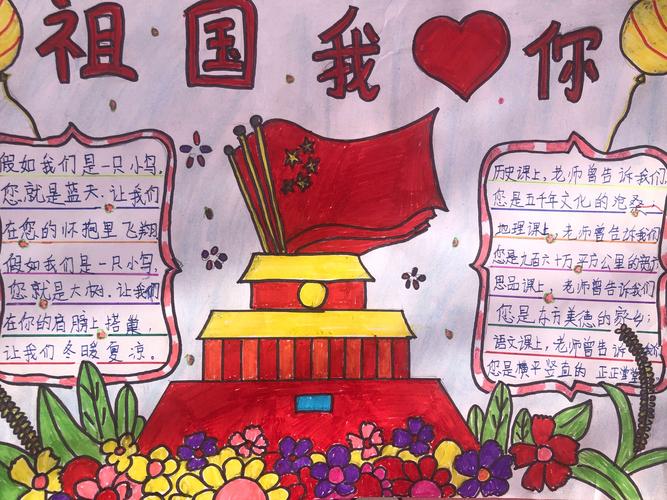 祖国我你
假如我们是一只小鸟,
您就是蓝天.让我们
在您的怀抱里飞翔
假如我们是一只小鸟,
您就是大树.让我们
在你的肩膀上搭巢,
让我们冬暖夏凉。
历史课上,老师曾告诉我们
您是五千年文化的沧桑
地理课上,老师曾告诉我们
您是九百六十万平方公里的宽广
思品课上,老师曾告诉我们
您是东方美德的家乡;
语文课上,老师曾告诉我们
您是横平竖直的 正正堂堂